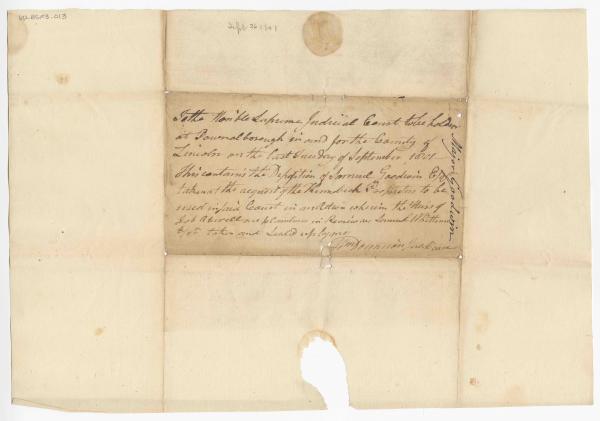 Sept. 26 1801
To the Hon'ble Supreme Judicial Court to be holden
at Pownalborough in and for the County of
Lincoln on the last Tuesday of September 1801
This contains the Deposition of Samuel Goodwin Esqr
taken at the request of the Kennebeck Proprietors to be
used in said Court in an Action wherein the Heirs of
Job Averell are plaintives in Review Samuel Whittemore
taken and Sealed up by me
Just Peace
Major Goodwin